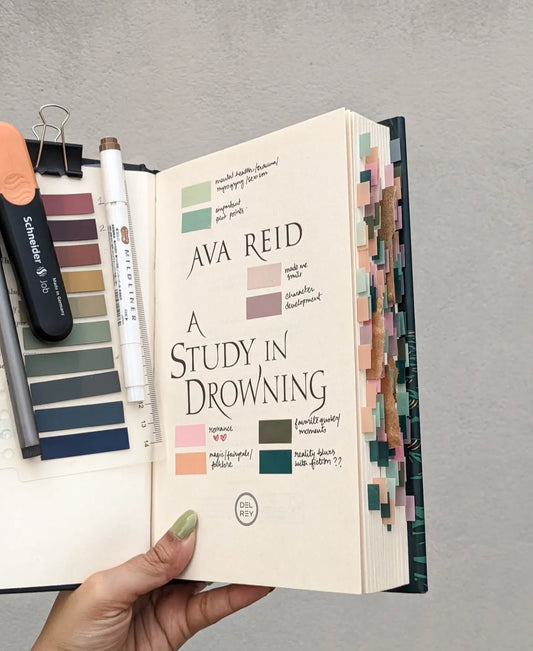 mental health/trauma/
mysogyny/sexism
important
plot points
AVA REID
made me
smile
character
development
A
STUDY IN
DROWNING
romance
favourite quotes/
moments
magic/fairytale/
folklore
reality blurs
with fiction ??
DEL
REY
Schneider
Job
Made in Germany
MILDLINER
1
12
13
14